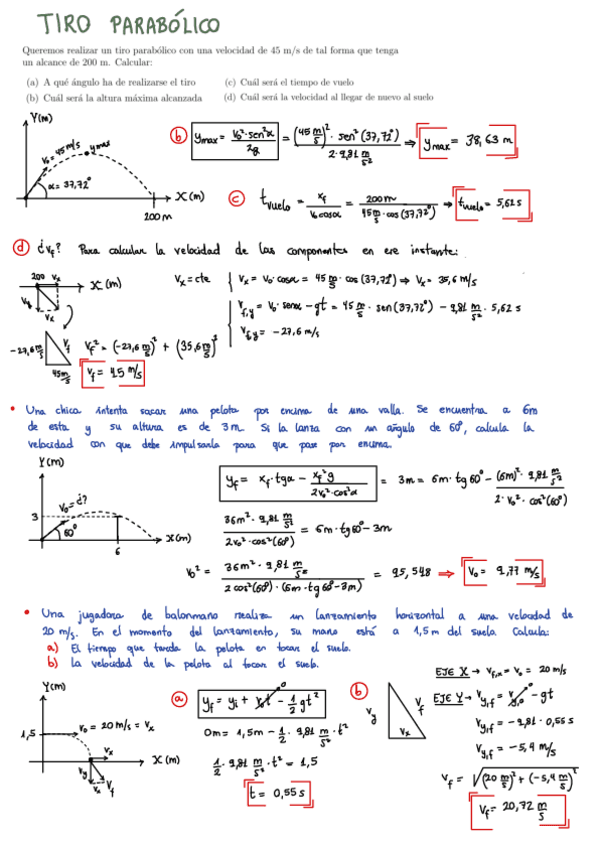 TIRO PARABÓLICO
Queremos realizar un tiro parabólico con una velocidad de 45 m/s de tal forma que tenga
un alcance de 200 m. Calcular:
(a) A qué ángulo ha de realizarse el tiro
(c) Cuál será el tiempo de vuelo
(b) Cuál será la altura máxima alcanzada
(d) Cuál será la velocidad al llegar de nuevo al suelo
Y(m)
v₀ = 45 m/s
ymax
α = 37,72°
X(m)
200 m
(b) ymax = v₀²·sen²α / 2g = (45 m/s)²·sen²(37,72°) / 2·9,81 m/s² ⇒ ymax = 38,63 m
(c) tvuelo = xf / v₀cosα = 200 m / 45 m/s·cos(37,72°) ⇒ tvuelo = 5,62 s
(d) ¿vf? Para calcular la velocidad de las componentes en ese instante:
200 vx
X(m)
vy
vx
vx = cte
vx = v₀·cosα = 45 m/s·cos(37,72°) ⇒ vx = 35,6 m/s
vf,y = v₀·senα - gt = 45 m/s·sen(37,72°) - 9,81 m/s²·5,62 s
vf,y = -27,6 m/s
-27,6 m/s
vf
45 m/s
vf² = (-27,6 m/s)² + (35,6 m/s)²
vf = 45 m/s
• Una chica intenta sacar una pelota por encima de una valla. Se encuentra a 6m
de esta y su altura es de 3m. Si la lanza con un ángulo de 60°, calcula la
velocidad con que debe impulsarla para que pase por encima.
Y(m)
v₀ = ¿?
3
60°
6
X(m)
yf = xf·tgα - xf²g / 2v₀²·cos²α = 3m = 6m·tg60° - (6m)²·9,81 m/s² / 2·v₀²·cos²(60°)
36m²·9,81 m/s² / 2v₀²·cos²(60°) = 6m·tg60° - 3m
v₀² = 36m²·9,81 m/s² / 2cos²(60°)·(6m·tg60° - 3m) = 95,548 ⇒ v₀ = 9,77 m/s
• Una jugadora de balonmano realiza un lanzamiento horizontal a una velocidad de
20 m/s. En el momento del lanzamiento, su mano está a 1,5m del suelo. Calcula:
a) El tiempo que tarda la pelota en tocar el suelo.
b) La velocidad de la pelota al tocar el suelo.
Y(m)
1,5
v₀ = 20 m/s = vx
vx
X(m)
vy
vx
vf
(a) yf = yi + v₀t - 1/2 gt²
0
0m = 1,5m - 1/2·9,81 m/s²·t²
1/2·9,81 m/s²·t² = 1,5
t = 0,55 s
(b)
vy
vf
vx
EJE X → vf,x = v₀ = 20 m/s
EJE Y → vy,f = vy,0 - gt
0
vy,f = -9,81·0,55 s
vy,f = -5,4 m/s
vf = √(20 m/s)² + (-5,4 m/s)²
vf = 20,72 m/s